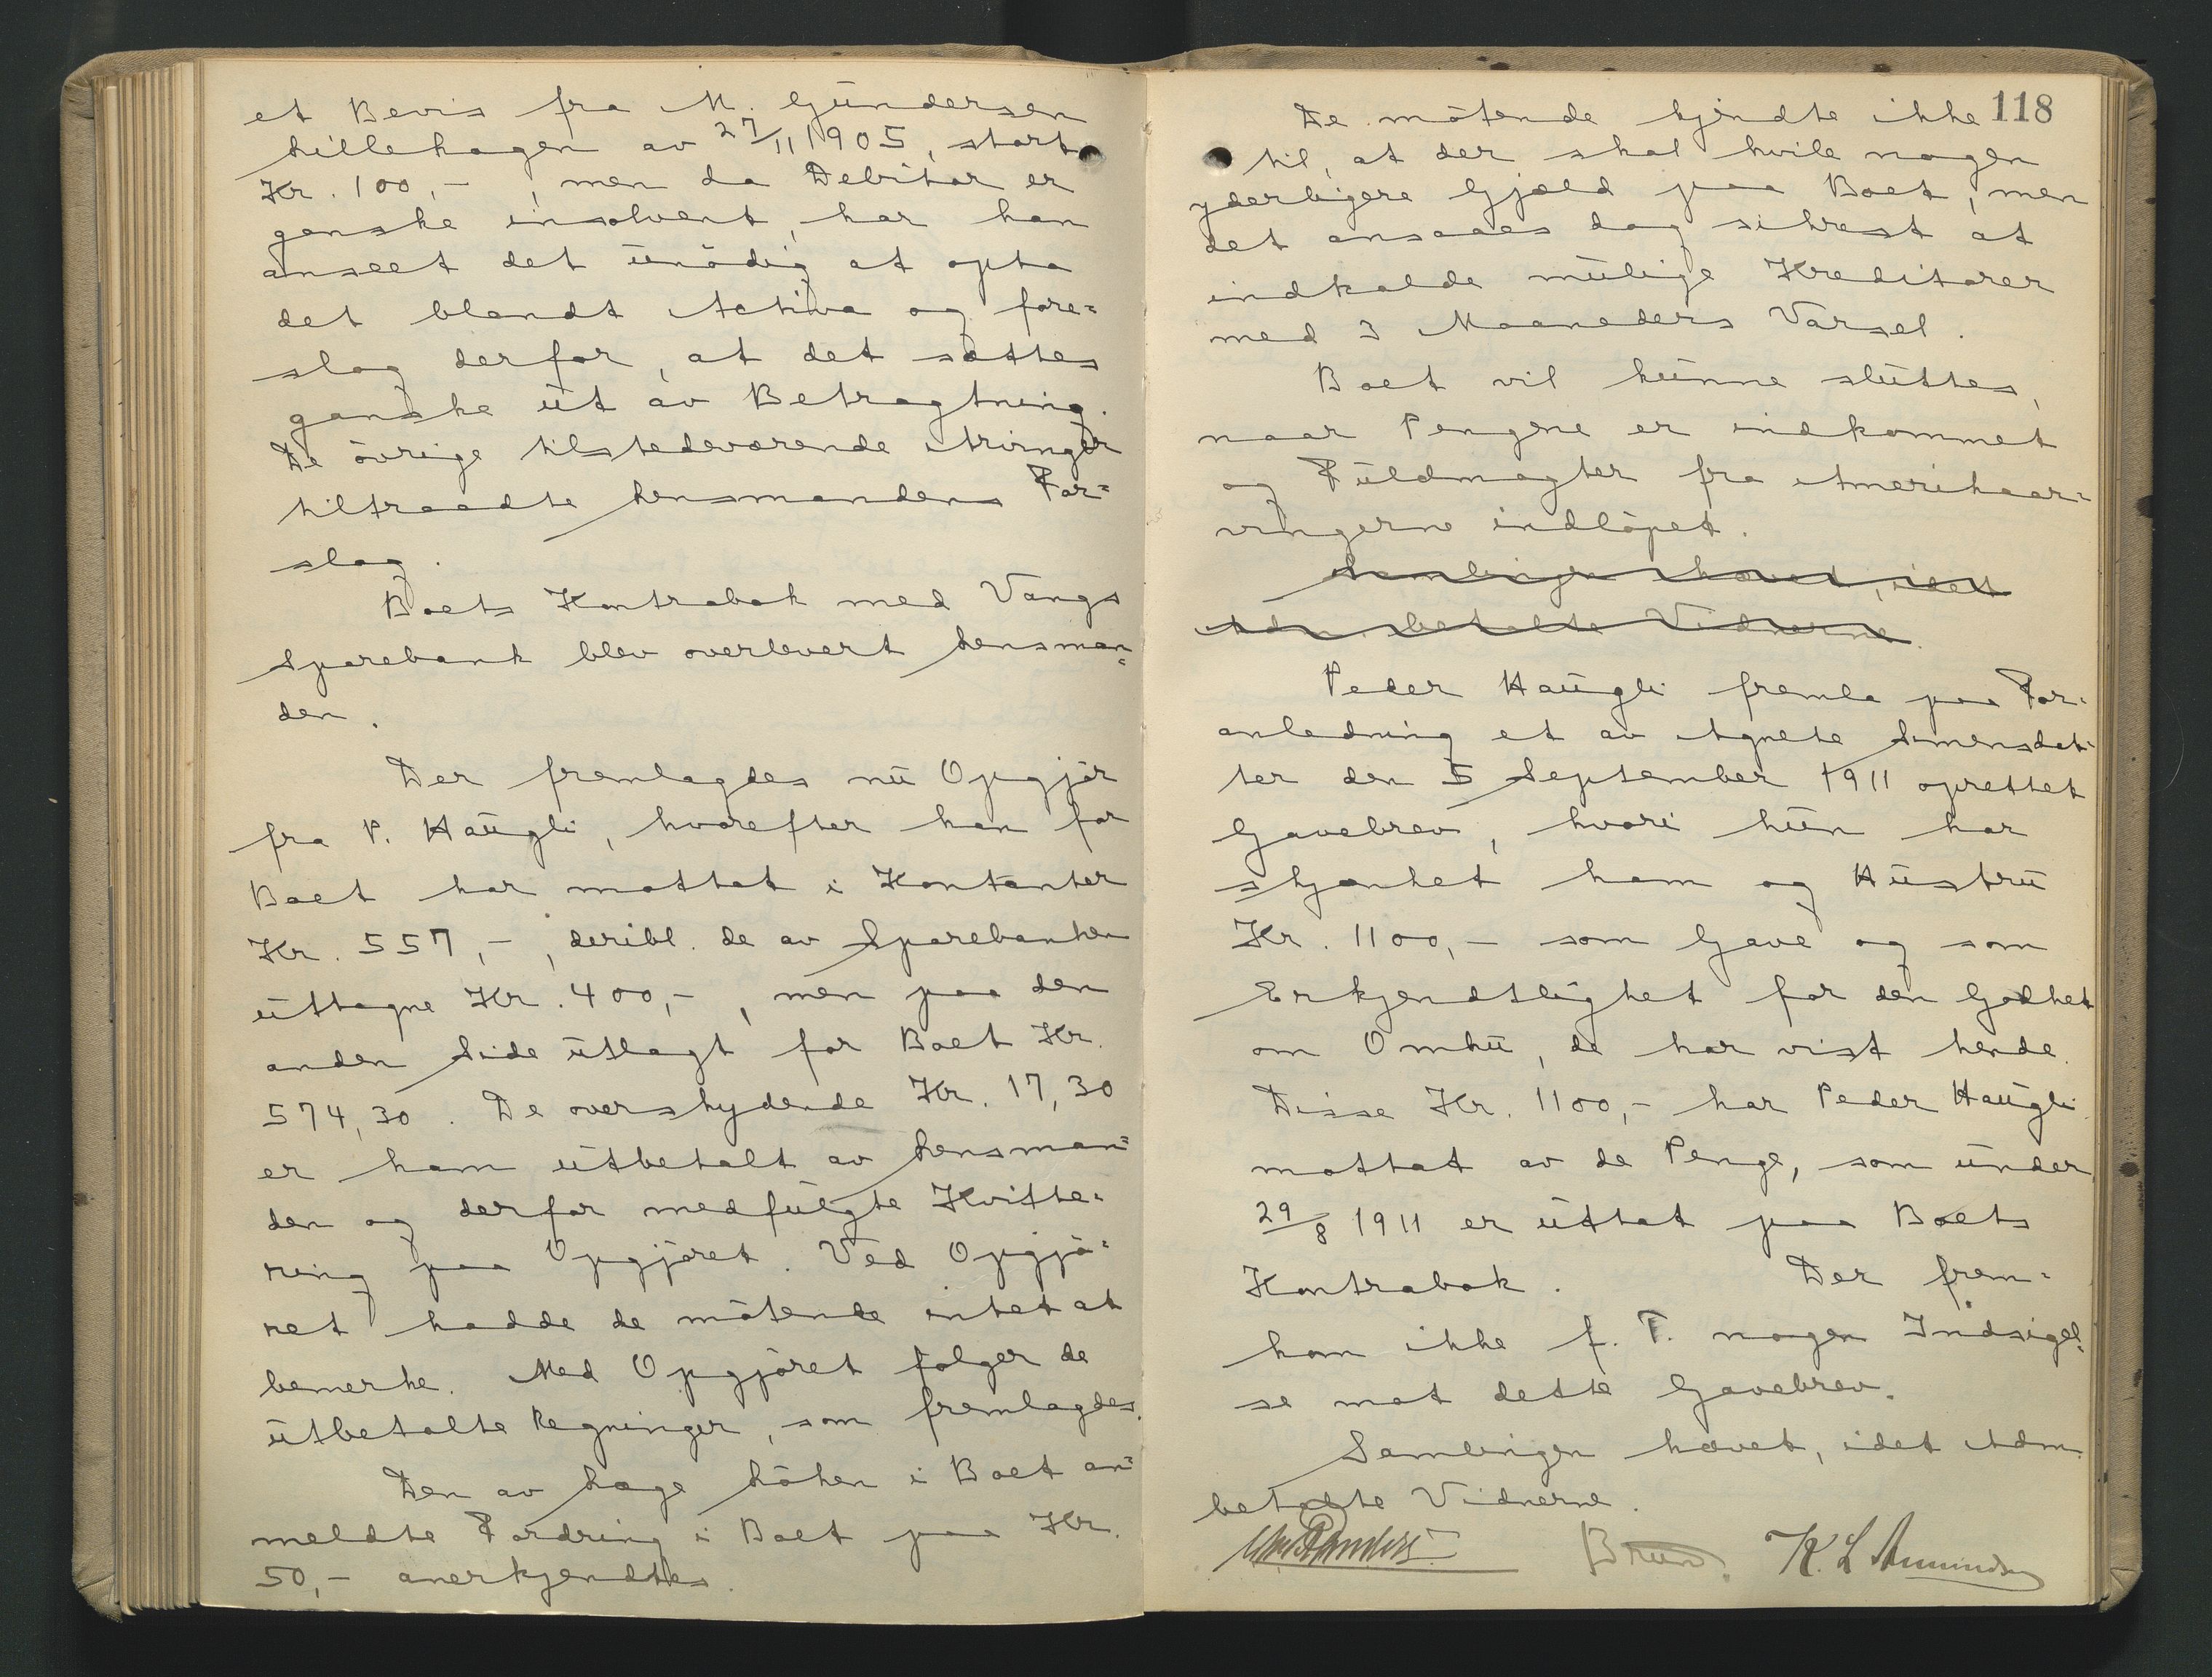 et Bevis fra M. Gundersen
Lillehagen av 27/11 1905, stort
Kr. 100,- , men da Debitor er
ganske insolvent, har han
anseet det unödig at opta
det blandt Activa og fore=
slog derfor, at det sættes
ganske ut av Betragtning.
De övrige tilstedeværende Arvinger
tiltraadte Lensmandens For=
slag.
Boets Kontrabok med Vangs
Sparebank blev overlevert Lensman=
den.
Der fremlagdes nu Opgjör
fra P. Haugli, hvorefter han for
Boet har mottat i Kontanter
Kr. 557,- , deribl. de av Sparebanken
uttagne Kr. 400,- , men paa den
anden Side utlagt for Boet Kr.
574,30. De overskydende Kr. 17,30
er ham utbetalt av Lensman=
den og derfor medfulgte Kvitte=
ring paa Opgjöret. Ved Opgjö=
ret hadde de mötende intet at
bemerke. Med Opgjöret fölger de
utbetalte Regninger, som fremlagdes.
Den av Lage Löken i Boet an=
meldte Fordring i Boet paa Kr.
50,- anerkjendtes.
118
De mötende kjendte ikke
til, at der skal hvile nogen
yderligere Gjæld paa Boet, men
det ansaaes dog sikrest at
indkalde mulige Kreditorer
med 3 Maaneders Varsel.
Boet vil kunne sluttes,
naar Pengene er indkommet
og Fuldmagter fra Amerikaar=
vingerne indlöpet.
Samlingen hævet, idet
Adm. betalte Vidnerne.
Peder Haugli fremla paa For=
anledning et av Agnete Simensdat=
ter den 5 September 1911 oprettet
Gavebrev, hvori hun har
skjænket ham og Hustru
Kr. 1100,- som Gave og som
Erkjendtlighet for den Godhet
om Omhu, de har vist hende.
Disse Kr. 1100,- har Peder Haugli
mottat av de Penge, som under
29/8 1911 er uttat paa Boets
Kontrabok. Der frem=
kom ikke f. T. nogen Indsigel=
se mot dette Gavebrev.
Samlingen hævet, idet Adm.
betalte Vidnerne.
Brun. K. L. Amundsen